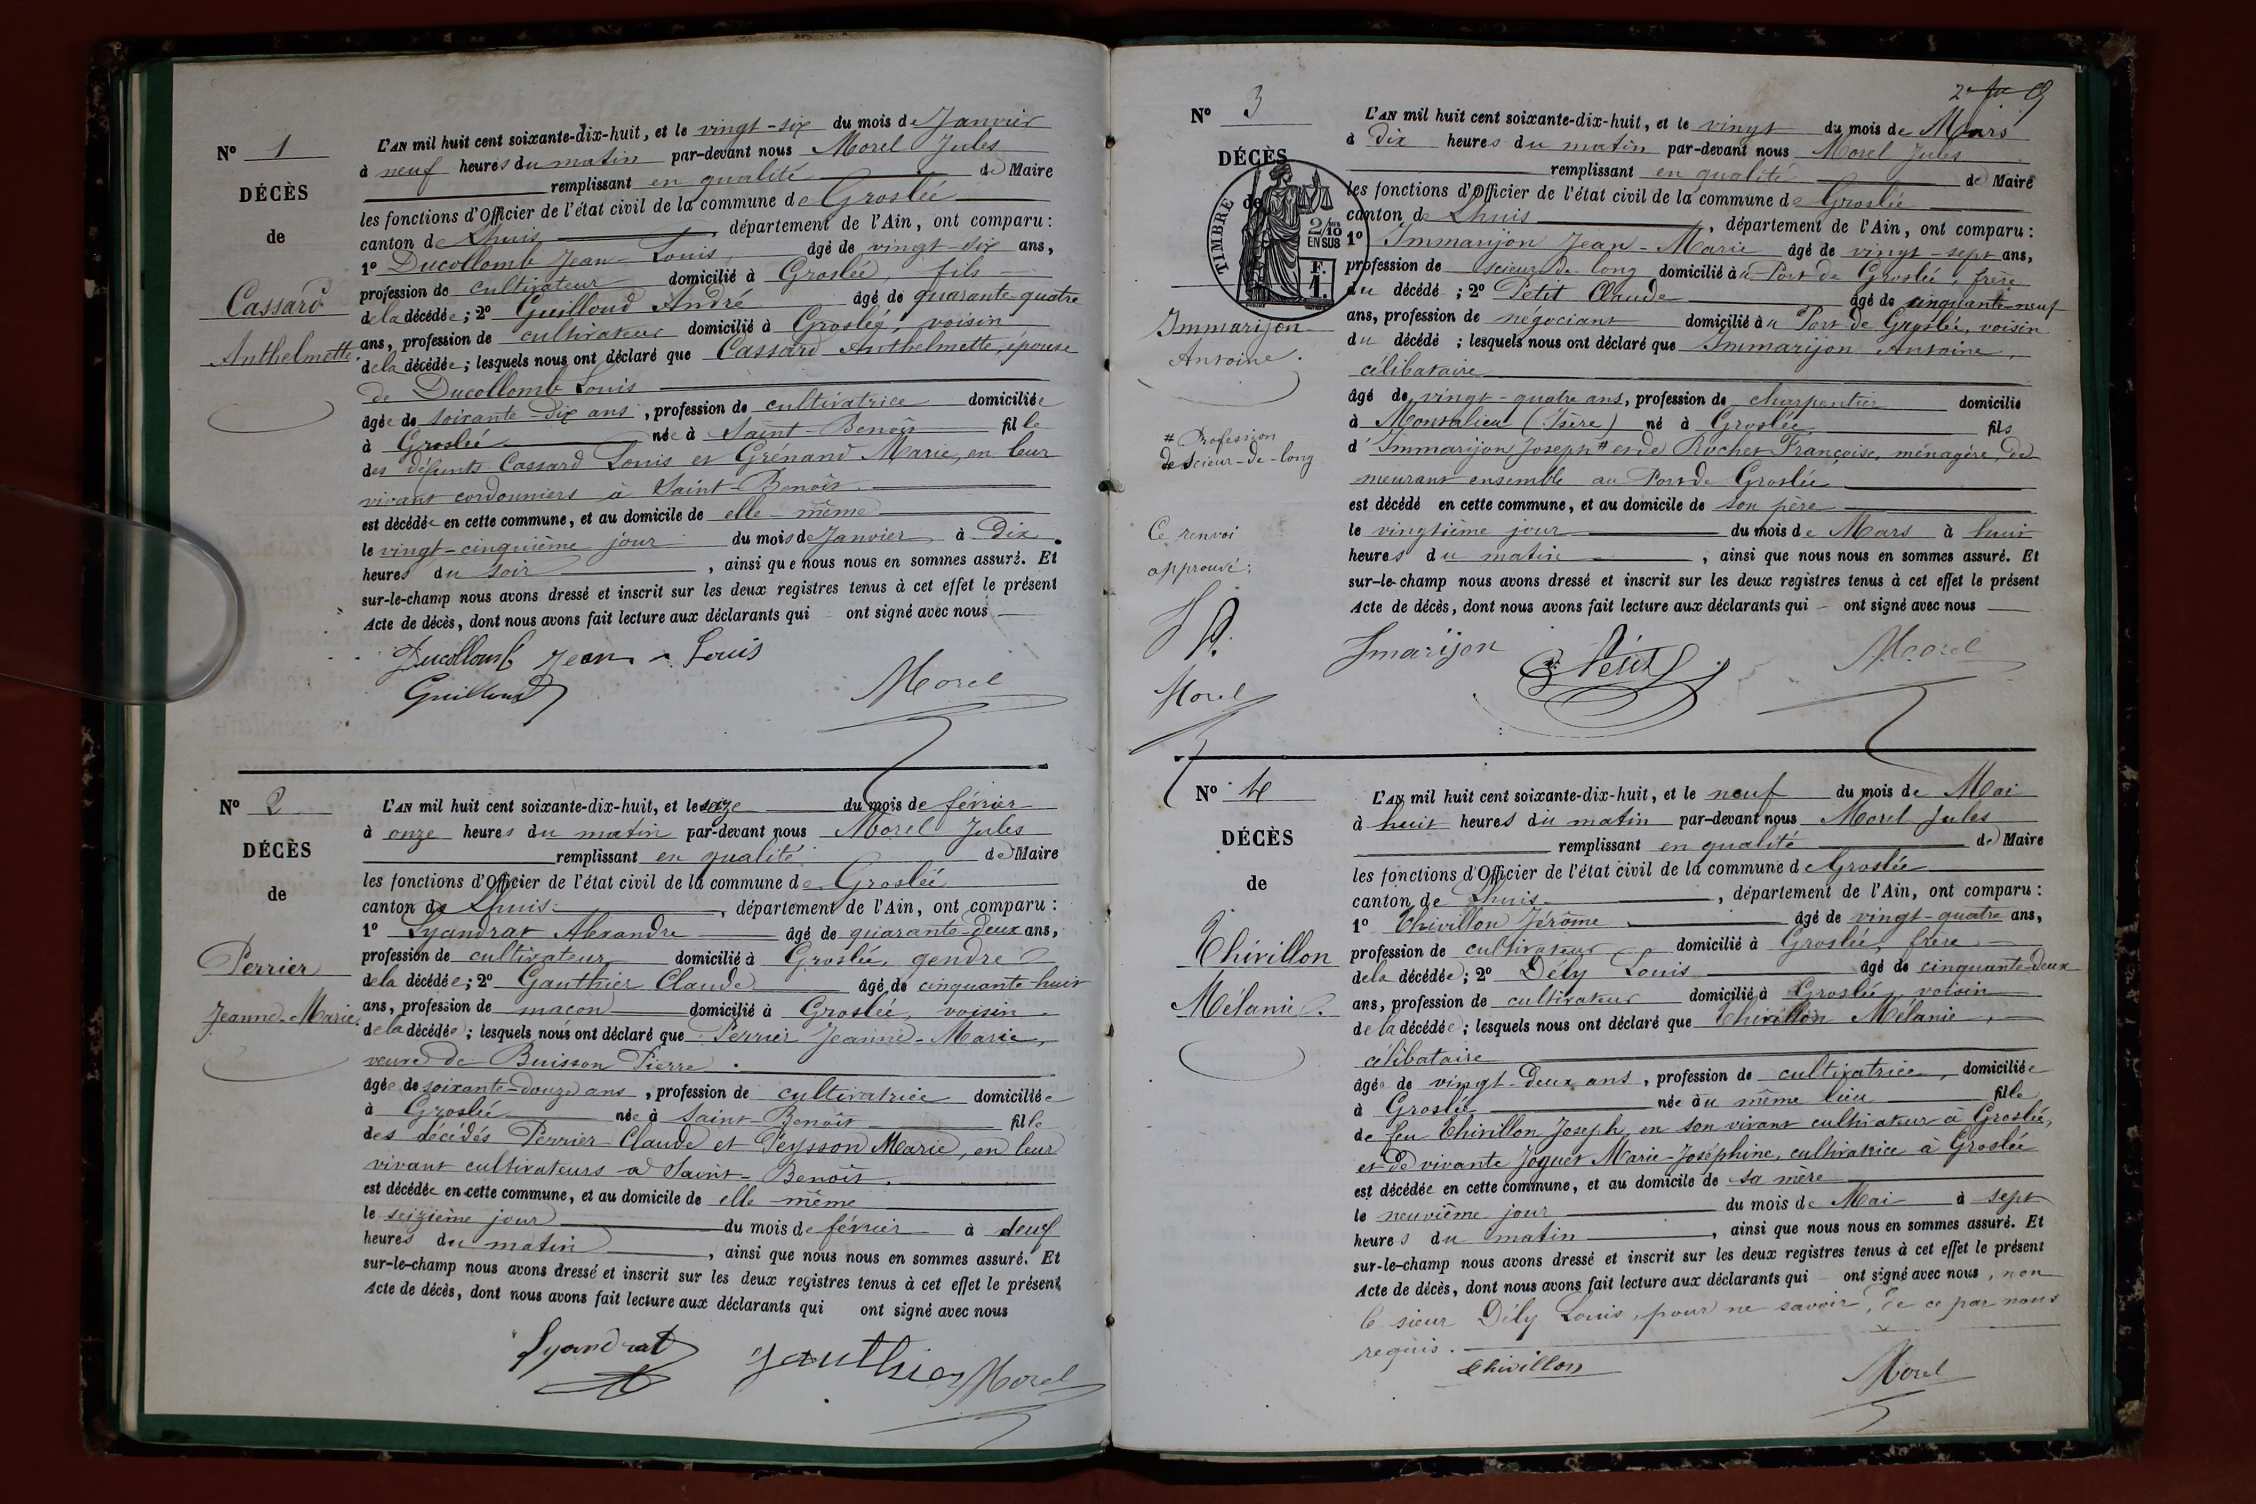 N° 1
DÉCÈS
de
Cassard
Anthelmette
L'AN mil huit cent soixante-dix-huit, et le vingt-six du mois de Janvier
à neuf heures du matin par-devant nous Morel Jules
remplissant en qualité de Maire
les fonctions d'Officier de l'état civil de la commune de Groslée
canton de Lhuis, département de l'Ain, ont comparu :
1° Ducollomb Jean-Louis, âgé de vingt-dix ans,
profession de cultivateur domicilié à Groslée, fils
de la décédée ; 2° Guilloud André âgé de quarante-quatre
ans, profession de cultivateur domicilié à Groslée, voisin
de la décédée ; lesquels nous ont déclaré que Cassard Anthelmette, épouse
de Ducollomb Louis
âgée de soixante-dix ans, profession de cultivatrice domiciliée
à Groslée née à Saint-Benoît fille
des défunts Cassard Louis et Grénand Marie, en leur
vivant cordonniers à Saint-Benoît.
est décédée en cette commune, et au domicile de elle-même
le vingt-cinquième jour du mois de Janvier à dix
heures du soir, ainsi que nous nous en sommes assuré. Et
sur-le-champ nous avons dressé et inscrit sur les deux registres tenus à cet effet le présent
Acte de décès, dont nous avons fait lecture aux déclarants qui ont signé avec nous
Ducollomb Jean-Louis
Guilloud Morel
N° 2
DÉCÈS
de
Perrier
Jeanne-Marie
L'AN mil huit cent soixante-dix-huit, et le seize du mois de février
à onze heures du matin par-devant nous Morel Jules
remplissant en qualité de Maire
les fonctions d'Officier de l'état civil de la commune de Groslée
canton de Lhuis, département de l'Ain, ont comparu :
1° Lyandrat Alexandre âgé de quarante-deux ans,
profession de cultivateur domicilié à Groslée, gendre
de la décédée ; 2° Gauthier Claude âgé de cinquante-huit
ans, profession de maçon domicilié à Groslée, voisin
de la décédée ; lesquels nous ont déclaré que Perrier Jeanne-Marie,
veuve de Buisson Pierre
âgée de soixante-douze ans, profession de cultivatrice domiciliée
à Groslée née à Saint-Benoît fille
des décédés Perrier Claude et Peysson Marie, en leur
vivant cultivateurs à Saint-Benoît.
est décédée en cette commune, et au domicile de elle même
le seizième jour du mois de février à neuf
heures du matin, ainsi que nous nous en sommes assuré. Et
sur-le-champ nous avons dressé et inscrit sur les deux registres tenus à cet effet le présent
Acte de décès, dont nous avons fait lecture aux déclarants qui ont signé avec nous
Lyandrat Gauthier Morel
N° 3
DÉCÈS
de
TIMBRE
2/10 EN SUS
F. 1.
Immarijon
Antoine.
# Profession
de scieur-de-long
Ce renvoi
approuvé :
Morel
L'AN mil huit cent soixante-dix-huit, et le vingt du mois de Mars
à dix heures du matin par-devant nous Morel Jules
remplissant en qualité de Maire
les fonctions d'Officier de l'état civil de la commune de Groslée
canton de Lhuis, département de l'Ain, ont comparu :
1° Immarijon Jean-Marie âgé de vingt-sept ans,
profession de scieur de long domicilié au Port de Groslée, frère
du décédé ; 2° Petit Claude âgé de cinquante-neuf
ans, profession de négociant domicilié au Port de Groslée, voisin
du décédé ; lesquels nous ont déclaré que Immarijon Antoine,
célibataire
âgé de vingt-quatre ans, profession de charpentier domicilié
à Montalieu (Isère) né à Groslée fils
d'Immarijon Joseph # et de Rochet Françoise, ménagère, de
meurant ensemble au Port de Groslée
est décédé en cette commune, et au domicile de son père
le vingtième jour du mois de Mars à huit
heures du matin, ainsi que nous nous en sommes assuré. Et
sur-le-champ nous avons dressé et inscrit sur les deux registres tenus à cet effet le présent
Acte de décès, dont nous avons fait lecture aux déclarants qui ont signé avec nous
Imarijon Petit Morel
N° 4
DÉCÈS
de
Thivillon
Mélanie.
L'AN mil huit cent soixante-dix-huit, et le neuf du mois de Mai
à huit heures du matin par-devant nous Morel Jules
remplissant en qualité de Maire
les fonctions d'Officier de l'état civil de la commune de Groslée
canton de Lhuis, département de l'Ain, ont comparu :
1° Thivillon Jérôme âgé de vingt-quatre ans,
profession de cultivateur domicilié à Groslée, frère
de la décédée ; 2° Dély Louis âgé de cinquante-deux
ans, profession de cultivateur domicilié à Groslée, voisin
de la décédée ; lesquels nous ont déclaré que Thivillon Mélanie,
célibataire
âgée de vingt-deux ans, profession de cultivatrice, domiciliée
à Groslée née au même lieu fille
de feu Thivillon Joseph, en son vivant cultivateur à Groslée,
et de vivante Joguet Marie-Joséphine, cultivatrice à Groslée
est décédée en cette commune, et au domicile de sa mère
le neuvième jour du mois de Mai à sept
heures du matin, ainsi que nous nous en sommes assuré. Et
sur-le-champ nous avons dressé et inscrit sur les deux registres tenus à cet effet le présent
Acte de décès, dont nous avons fait lecture aux déclarants qui ont signé avec nous, non
le sieur Dély Louis, pour ne savoir, de ce par nous
requis.
Thivillon Morel